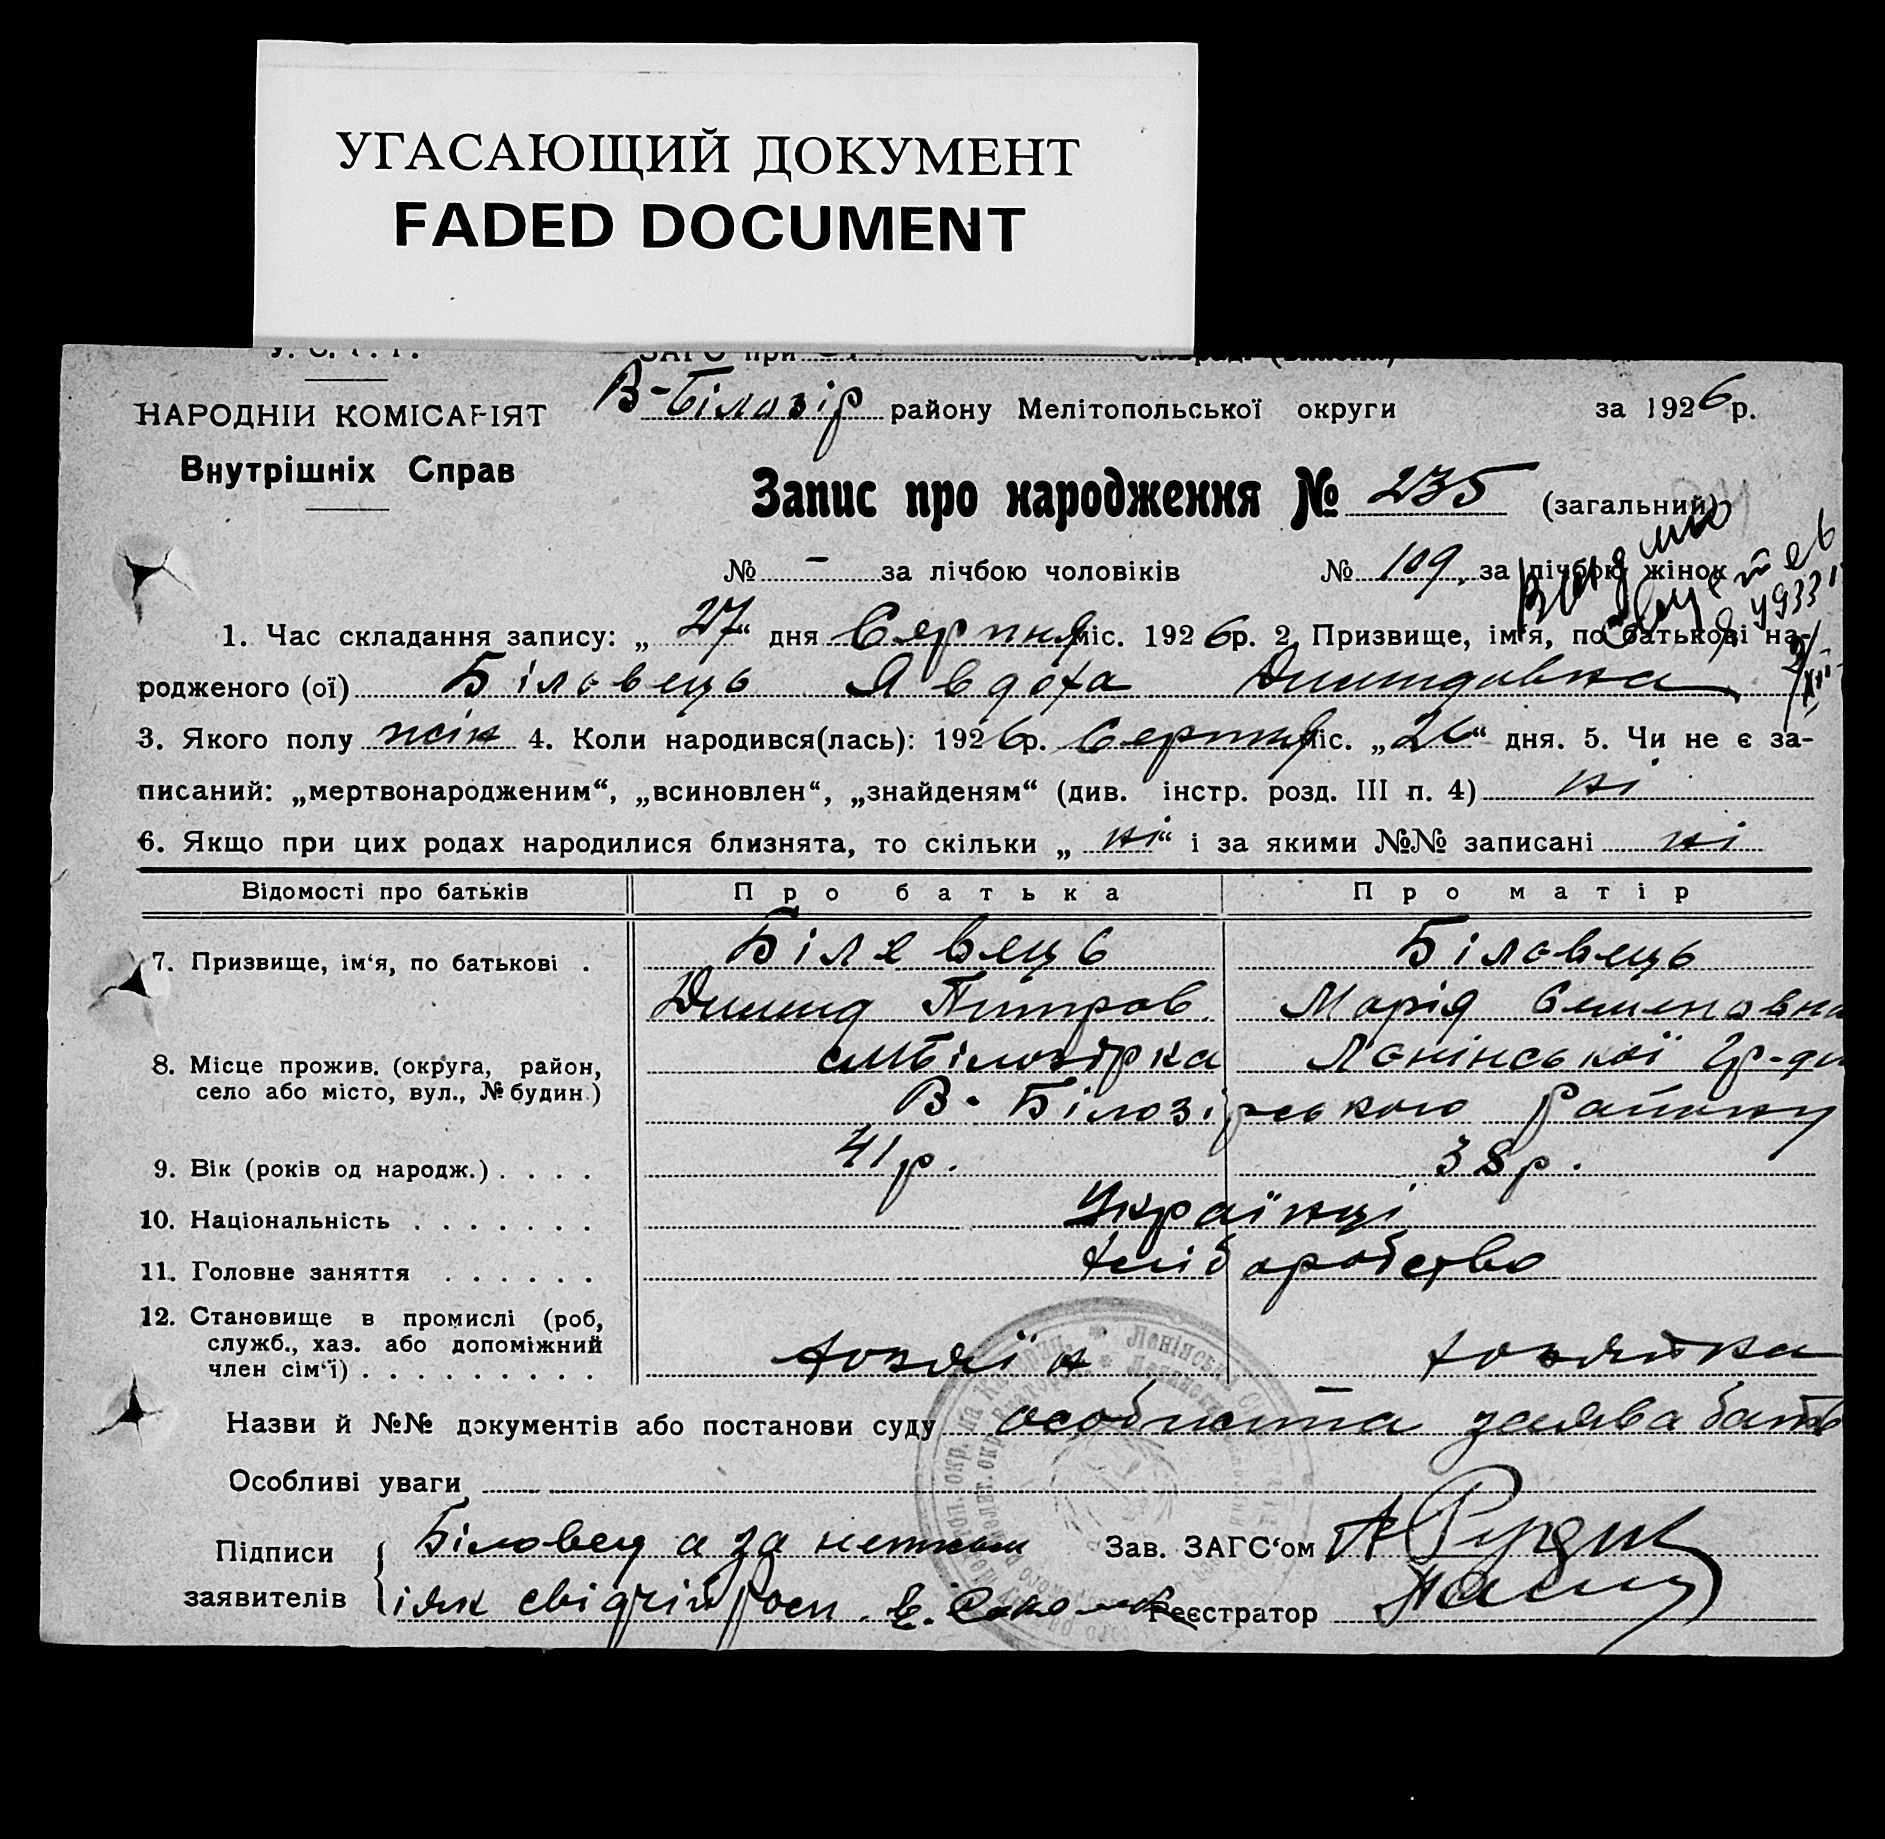 УГАСАЮЩИЙ ДОКУМЕНТ
FADED DOCUMENT
У. С. Р. Р.
ЗАГС при
НАРОДНІЙ КОМІСАРІЯТ
Внутрішніх Справ
В-Білозір району Мелітопольської округи за 1926 р.
Запис про народження № 235 (загальний)
№ - за лічбою чоловіків № 109 за лічбою жінок
1. Час складання запису: „27“ дня Серпня міс. 1926 р. 2. Призвище, ім‘я, по батькові на-
родженого (ої) Біловець Явдоха
3. Якого полу жін 4. Коли народився(лась): 1926 р. Серпня міс. „26“ дня. 5. Чи не є за-
писаний: „мертвонародженим“, „всиновлен“, „знайденям“ (див. інстр. розд. III п. 4) ні
6. Якщо при цих родах народилися близнята, то скільки „ні“ і за якими №№ записані ні
Відомості про батьків Про батька Про матір
7. Призвище, ім‘я, по батькові . Білевець Біловець
Петров. Марія Семеновна
8. Місце прожив. (округа, район, село або місто, вул., № будин.) Білозірка Ленінської
В-Білозірського району
9. Вік (років од народж.) . . . . 41 р. 38 р.
10. Національність . . . . . . . Українці
11. Головне заняття . . . . . . хліборобство
12. Становище в промислі (роб,
служб., хаз. або допоміжний
член сім‘ї) . . . . . . . . . хозяїн хозяйка
Назви й №№ документів або постанови суду особиста заява батьк
Особливі уваги
Підписи заявителів Біловец а за
і як свідчій росп.
Зав. ЗАГС‘ом
Реєстратор